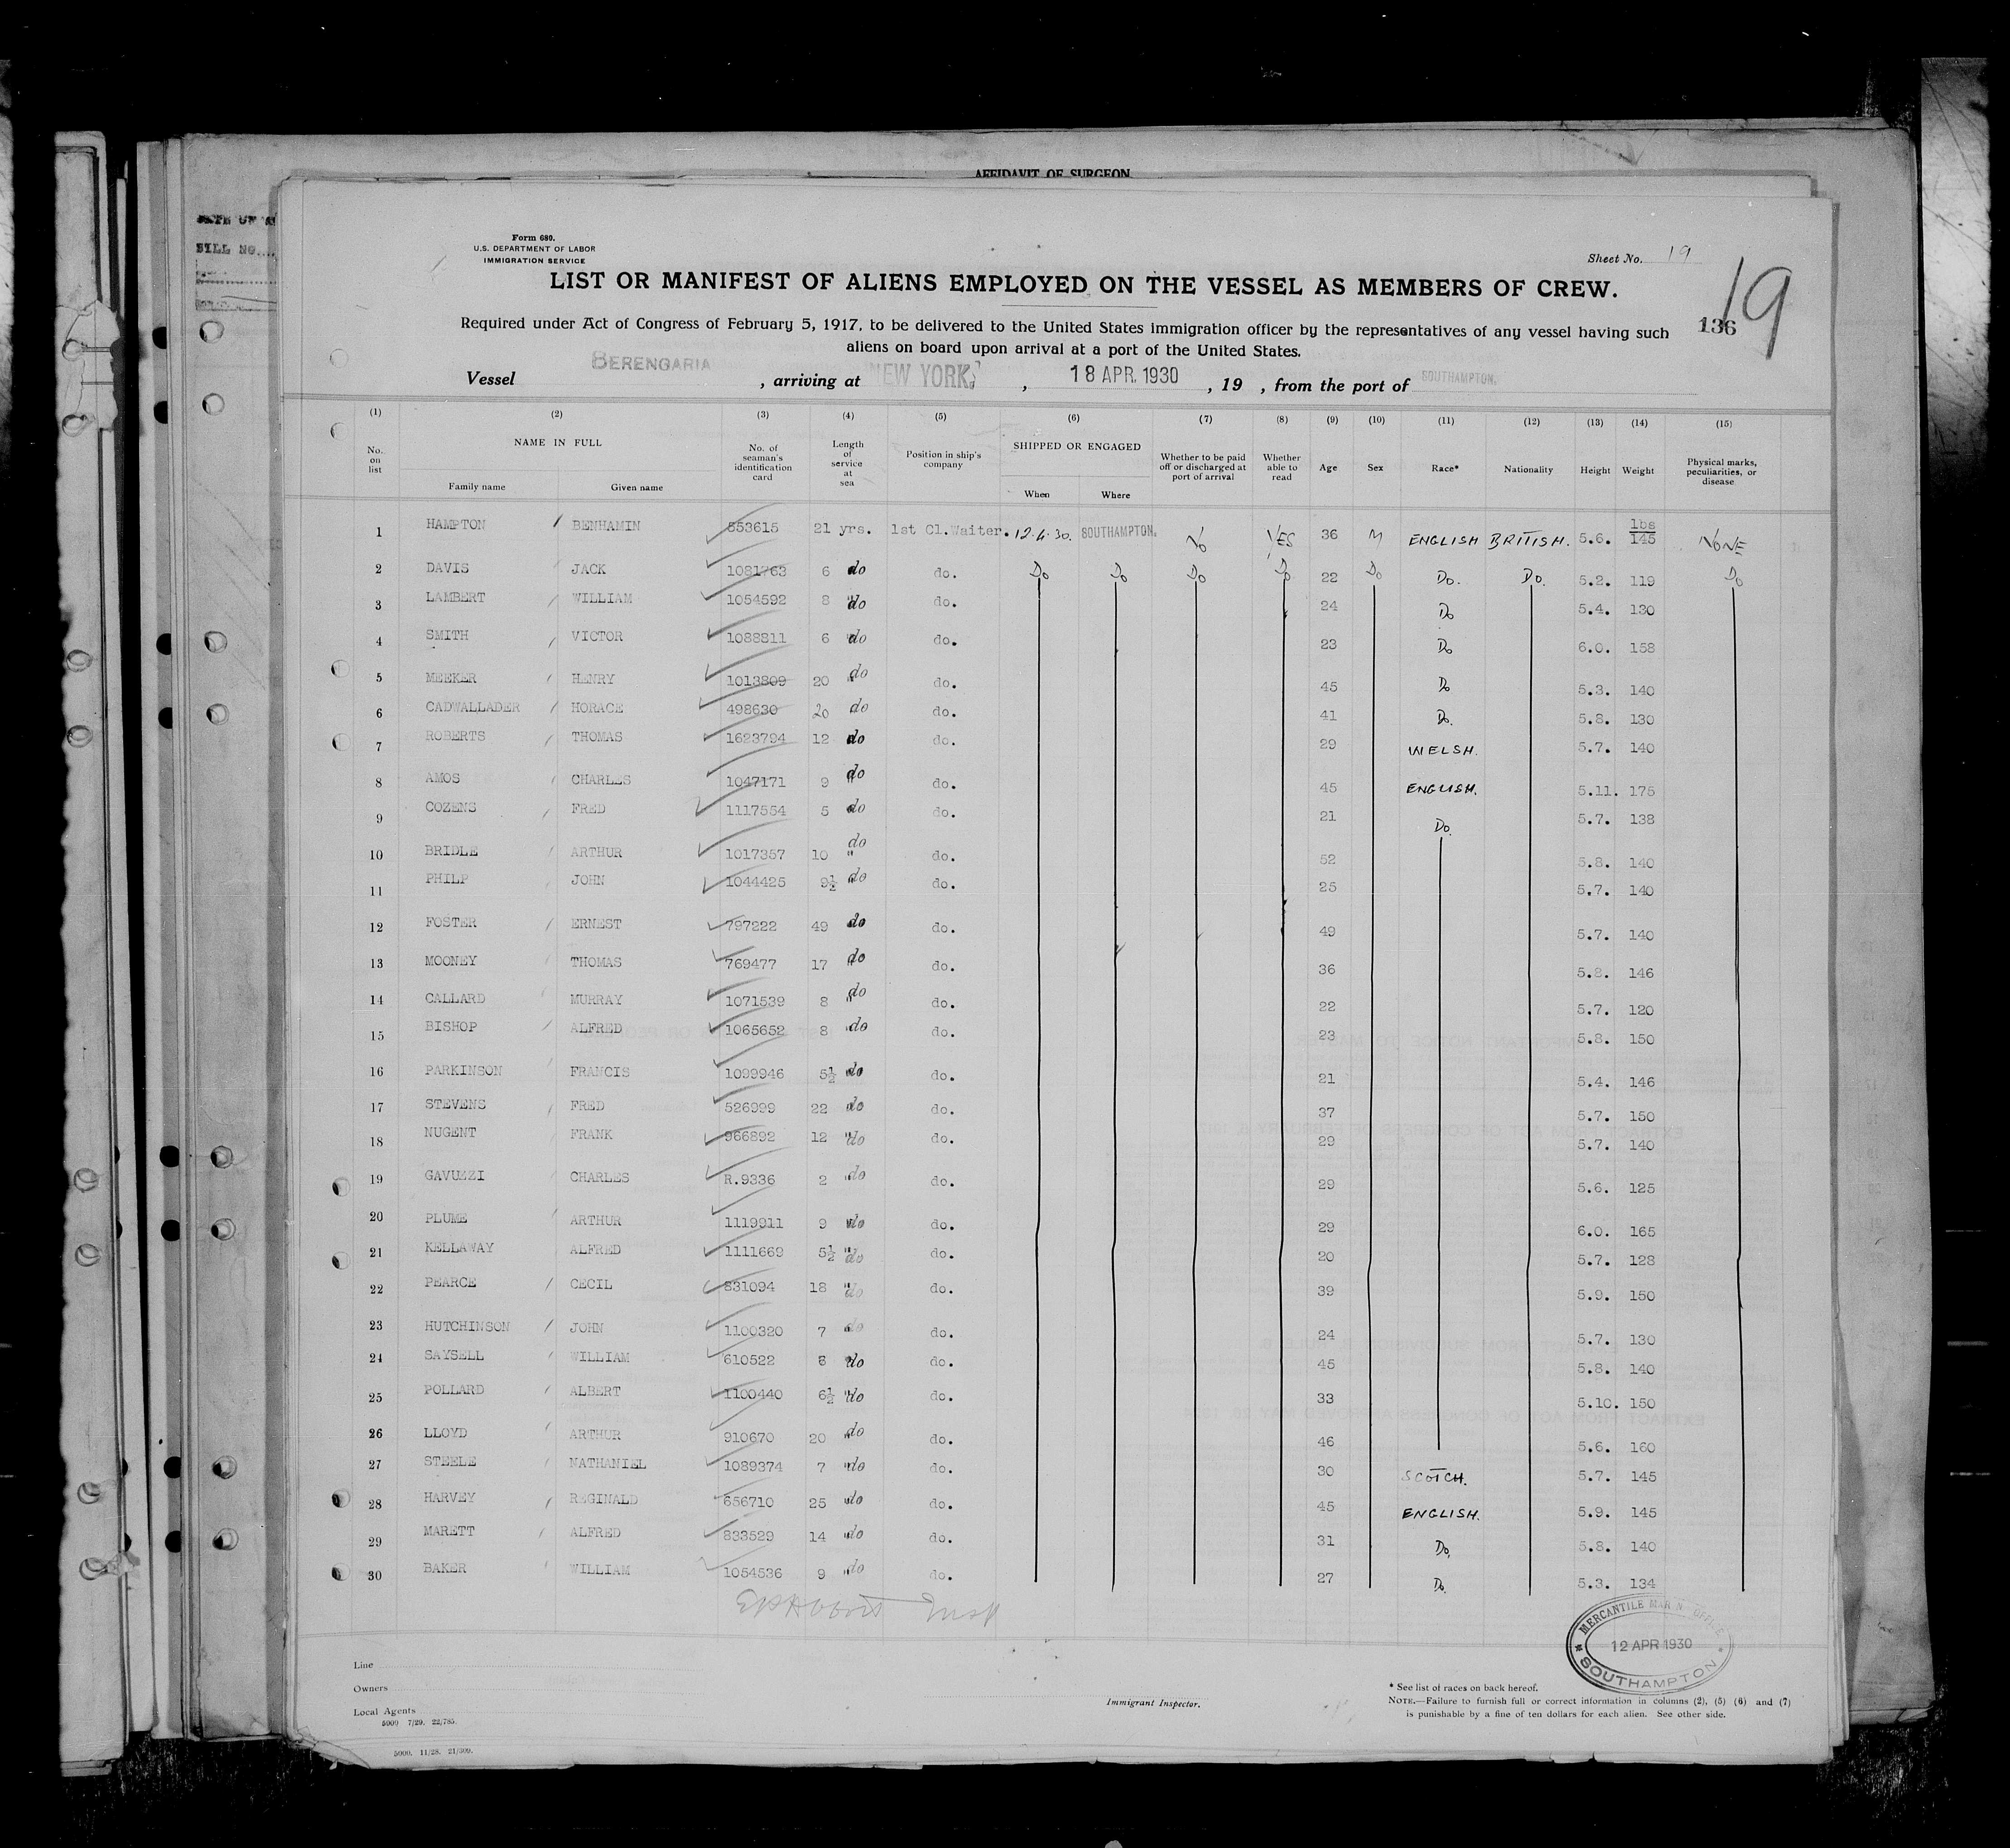 AFFIDAVIT OF SURGEON
BILL NO.
Form 680.
U.S. DEPARTMENT OF LABOR
IMMIGRATION SERVICE
Sheet No. 19
19
LIST OR MANIFEST OF ALIENS EMPLOYED ON THE VESSEL AS MEMBERS OF CREW.
136
Required under Act of Congress of February 5, 1917, to be delivered to the United States immigration officer by the representatives of any vessel having such
aliens on board upon arrival at a port of the United States.
Vessel BERENGARIA, arriving at NEW YORK, 18 APR. 1930, 19 , from the port of SOUTHAMPTON.
(1) (2) (3) (4) (5) (6) (7) (8) (9) (10) (11) (12) (13) (14) (15)
No. on list NAME IN FULL Family name Given name No. of seaman's identification card Length of service at sea Position in ship's company SHIPPED OR ENGAGED When Where Whether to be paid off or discharged at port of arrival Whether able to read Age Sex Race* Nationality Height Weight Physical marks, peculiarities, or disease
1 HAMPTON BENHAMIN 553615 21 yrs. 1st Cl.Waiter. 12.4.30. SOUTHAMPTON. No YES 36 M ENGLISH BRITISH. 5.6. lbs 145 NONE
2 DAVIS JACK 1081763 6 do do. Do Do Do Do 22 Do Do. Do. 5.2. 119 Do
3 LAMBERT WILLIAM 1054592 8 " do do. 24 Do 5.4. 130
4 SMITH VICTOR 1088811 6 do do. 23 Do 6.0. 158
5 MEEKER HENRY 1013809 20 " do do. 45 Do 5.3. 140
6 CADWALLADER HORACE 498630 20 do do. 41 Do. 5.8. 130
7 ROBERTS THOMAS 1623794 12 do do. 29 WELSH. 5.7. 140
8 AMOS CHARLES 1047171 9 " do do. 45 ENGLISH. 5.11. 175
9 COZENS FRED 1117554 5 do do. 21 Do. 5.7. 138
10 BRIDLE ARTHUR 1017357 10 " do do. 52 5.8. 140
11 PHILP JOHN 1044425 9½ " do do. 25 5.7. 140
12 FOSTER ERNEST 797222 49 do do. 49 5.7. 140
13 MOONEY THOMAS 769477 17 " do do. 36 5.8. 146
14 CALLARD MURRAY 1071539 8 " do do. 22 5.7. 120
15 BISHOP ALFRED 1065652 8 " do do. 23 5.8. 150
16 PARKINSON FRANCIS 1099946 5½ do do. 21 5.4. 146
17 STEVENS FRED 526999 22 do do. 37 5.7. 150
18 NUGENT FRANK 966892 12 " do do. 29 5.7. 140
19 GAVUZZI CHARLES R.9336 2 " do do. 29 5.6. 125
20 PLUME ARTHUR 1119911 9 do do. 29 6.0. 165
21 KELLAWAY ALFRED 1111669 5½ " do do. 20 5.7. 128
22 PEARCE CECIL 831094 18 " do do. 39 5.9. 150
23 HUTCHINSON JOHN 1100320 7 do do. 24 5.7. 130
24 SAYSELL WILLIAM 610522 do do. 45 5.8. 140
25 POLLARD ALBERT 1100440 6½ " do do. 33 5.10. 150
26 LLOYD ARTHUR 910670 20 " do do. 46 5.6. 160
27 STEELE NATHANIEL 1089374 7 " do do. 30 SCOTCH. 5.7. 145
28 HARVEY REGINALD 656710 25 do do. 45 ENGLISH. 5.9. 145
29 MARETT ALFRED 833529 14 do do. 31 Do. 5.8. 140
30 BAKER WILLIAM 1054536 9 " do do. 27 Do. 5.3. 134
MERCANTILE MARINE OFFICE
12 APR 1930
SOUTHAMPTON
Line
Owners
Local Agents
5000 7/29. 22/785.
5000. 11/28. 21/309.
Immigrant Inspector.
* See list of races on back hereof.
NOTE.—Failure to furnish full or correct information in columns (2), (5) (6) and (7)
is punishable by a fine of ten dollars for each alien. See other side.